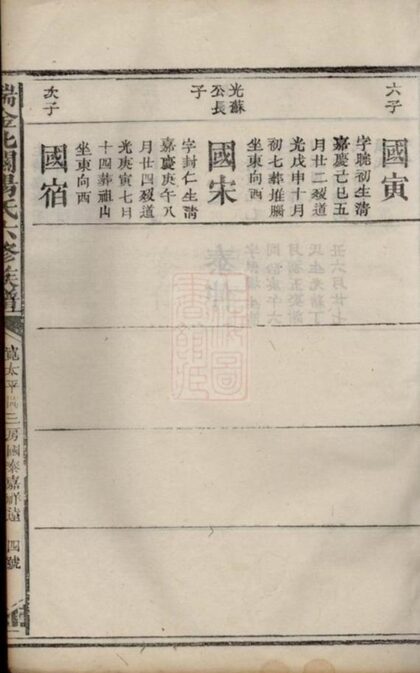 六子
國寅
字晀初生清
嘉慶己巳五
月廿二殁道
光戊申十月
初七葬堆腦
坐東向西
光蘇
公長
子
國宋
字封仁生清
嘉慶庚午八
月廿四殁道
光庚寅七日
十四葬祖山
坐東向西
次子
國宿
瑞金北關楊氏六修族譜
房國泰嘉祥遠
四號